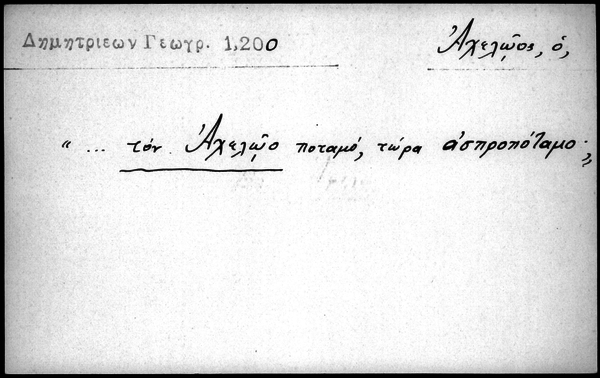 Δημητριεων Γεωγρ. 1,200
Ἀχελῷος, ὁ,
“ ... τόν Ἀχελῷο ποταμό, τώρα ἀσπροπόταμο·„